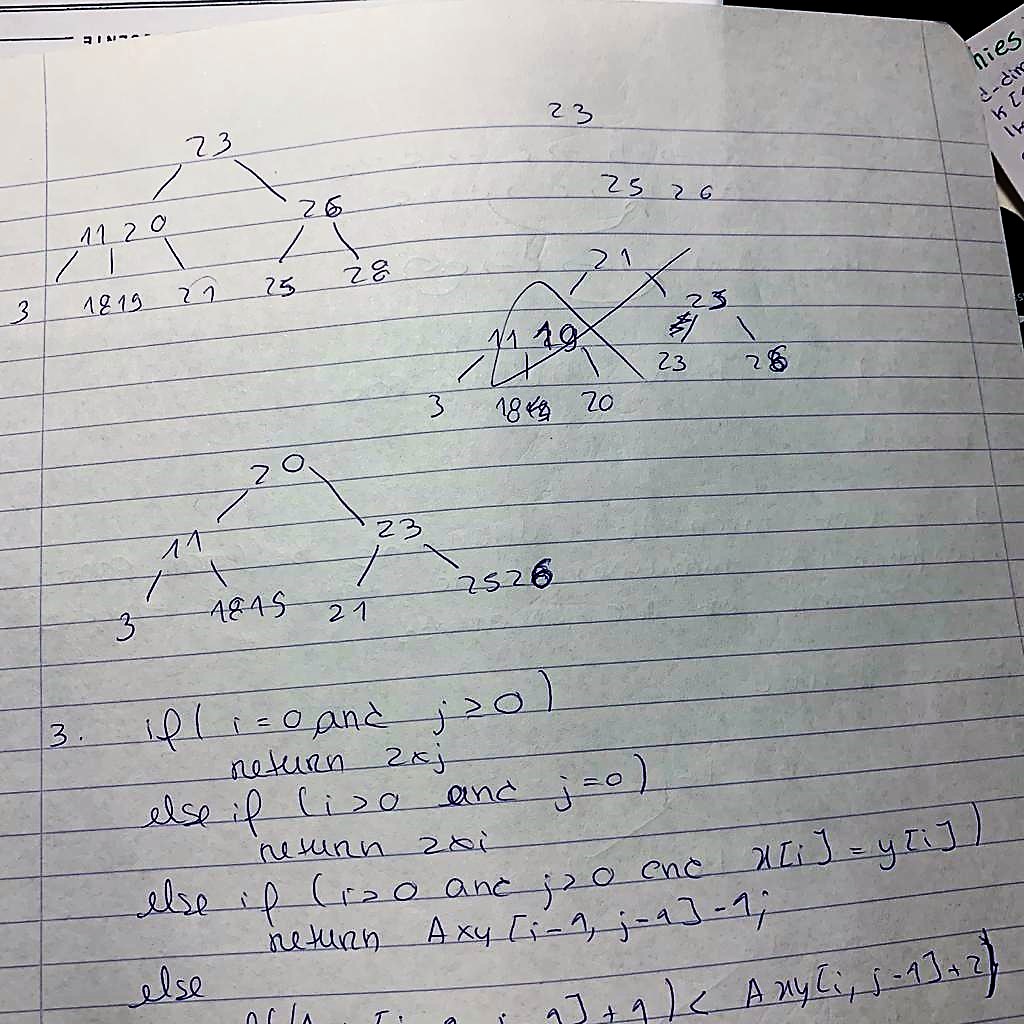 23
23
25 26
11 20
26
3
18 19
21
25
28
21
25
11 19
23
26
3
18
20
20
11
23
3
18 19
21
25 26
3. if ( i = 0 and j ≥ 0 )
return 2 x j
else if ( i > 0 and j = 0 )
return 2 x i
else if ( i > 0 and j > 0 and x[i] = y[i] )
return Axy [i-1, j-1] - 1;
else
] + 1 ) < Axy[i, j-1] + 2)
nies
d-dim